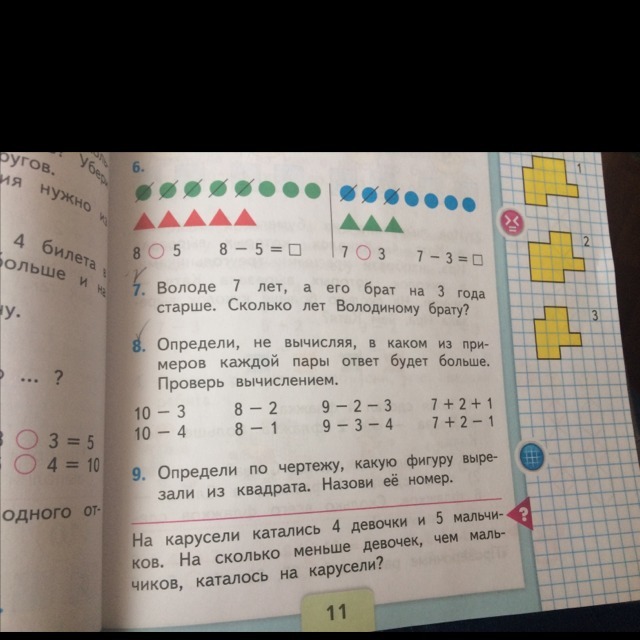 ругов. Убер
ия нужно и
4 билета в
больше и на
чу.
... ?
3 = 5
4 = 10
одного от-
6.
8 ○ 5 8 − 5 = □ 7 ○ 3 7 − 3 = □
7. Володе 7 лет, а его брат на 3 года
старше. Сколько лет Володиному брату?
8. Определи, не вычисляя, в каком из при-
меров каждой пары ответ будет больше.
Проверь вычислением.
10 − 3 8 − 2 9 − 2 − 3 7 + 2 + 1
10 − 4 8 − 1 9 − 3 − 4 7 + 2 − 1
9. Определи по чертежу, какую фигуру выре-
зали из квадрата. Назови её номер.
На карусели катались 4 девочки и 5 мальчи-
ков. На сколько меньше девочек, чем маль-
чиков, каталось на карусели?
?
11
1
2
3